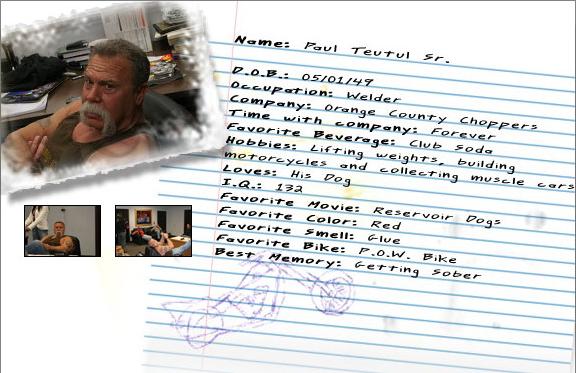 Name: Paul Teutul Sr.
D.O.B.: 05/01/49
Occupation: Welder
Company: Orange County Choppers
Time with company: Forever
Favorite Beverage: Club Soda
Hobbies: Lifting weights, building
motorcycles and collecting muscle cars
Loves: His Dog
I.Q.: 132
Favorite Movie: Reservoir Dogs
Favorite Color: Red
Favorite Smell: Glue
Favorite Bike: P.O.W. Bike
Best Memory: Getting Sober